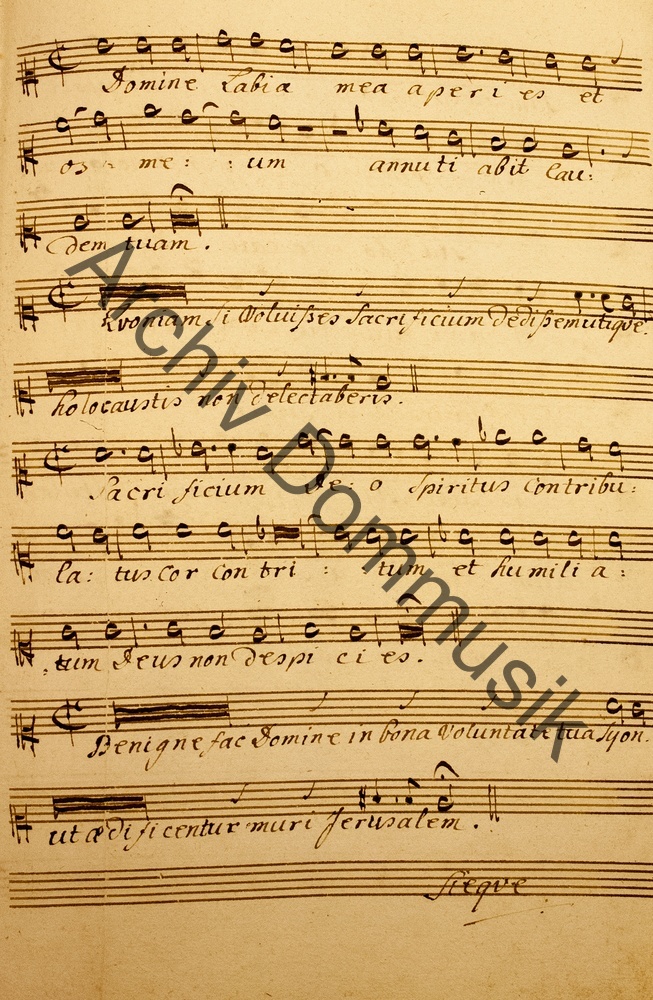 Domine Labia mea aperi es et
os me : : um annuti abit lau :
dem tuam .
Quoniam si Voluisses Sacrificium dedissem utique .
holocaustis non delectaberis .
Sacri ficium De : o Spiritus Contribu :
la : tus Cor Con tri : tum et humili a :
tum Deus non despi ci es .
Benigne fac Domine in bona Voluntate tua Syon .
ut ædificentur muri Jerusalem .
Sieque
Archiv Dommusik